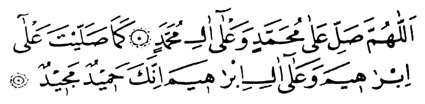 اَللّٰهُمَّ صَلِّ عَلٰى مُحَمَّدٍ وَعَلٰٓى اٰلِ مُحَمَّدٍ ۝ كَمَا صَلَّيْتَ عَلٰٓى
اِبْرٰهِيْمَ وَعَلٰٓى اٰلِ اِبْرٰهِيْمَ اِنَّكَ حَمِيْدٌ مَجِيْدٌ ۝